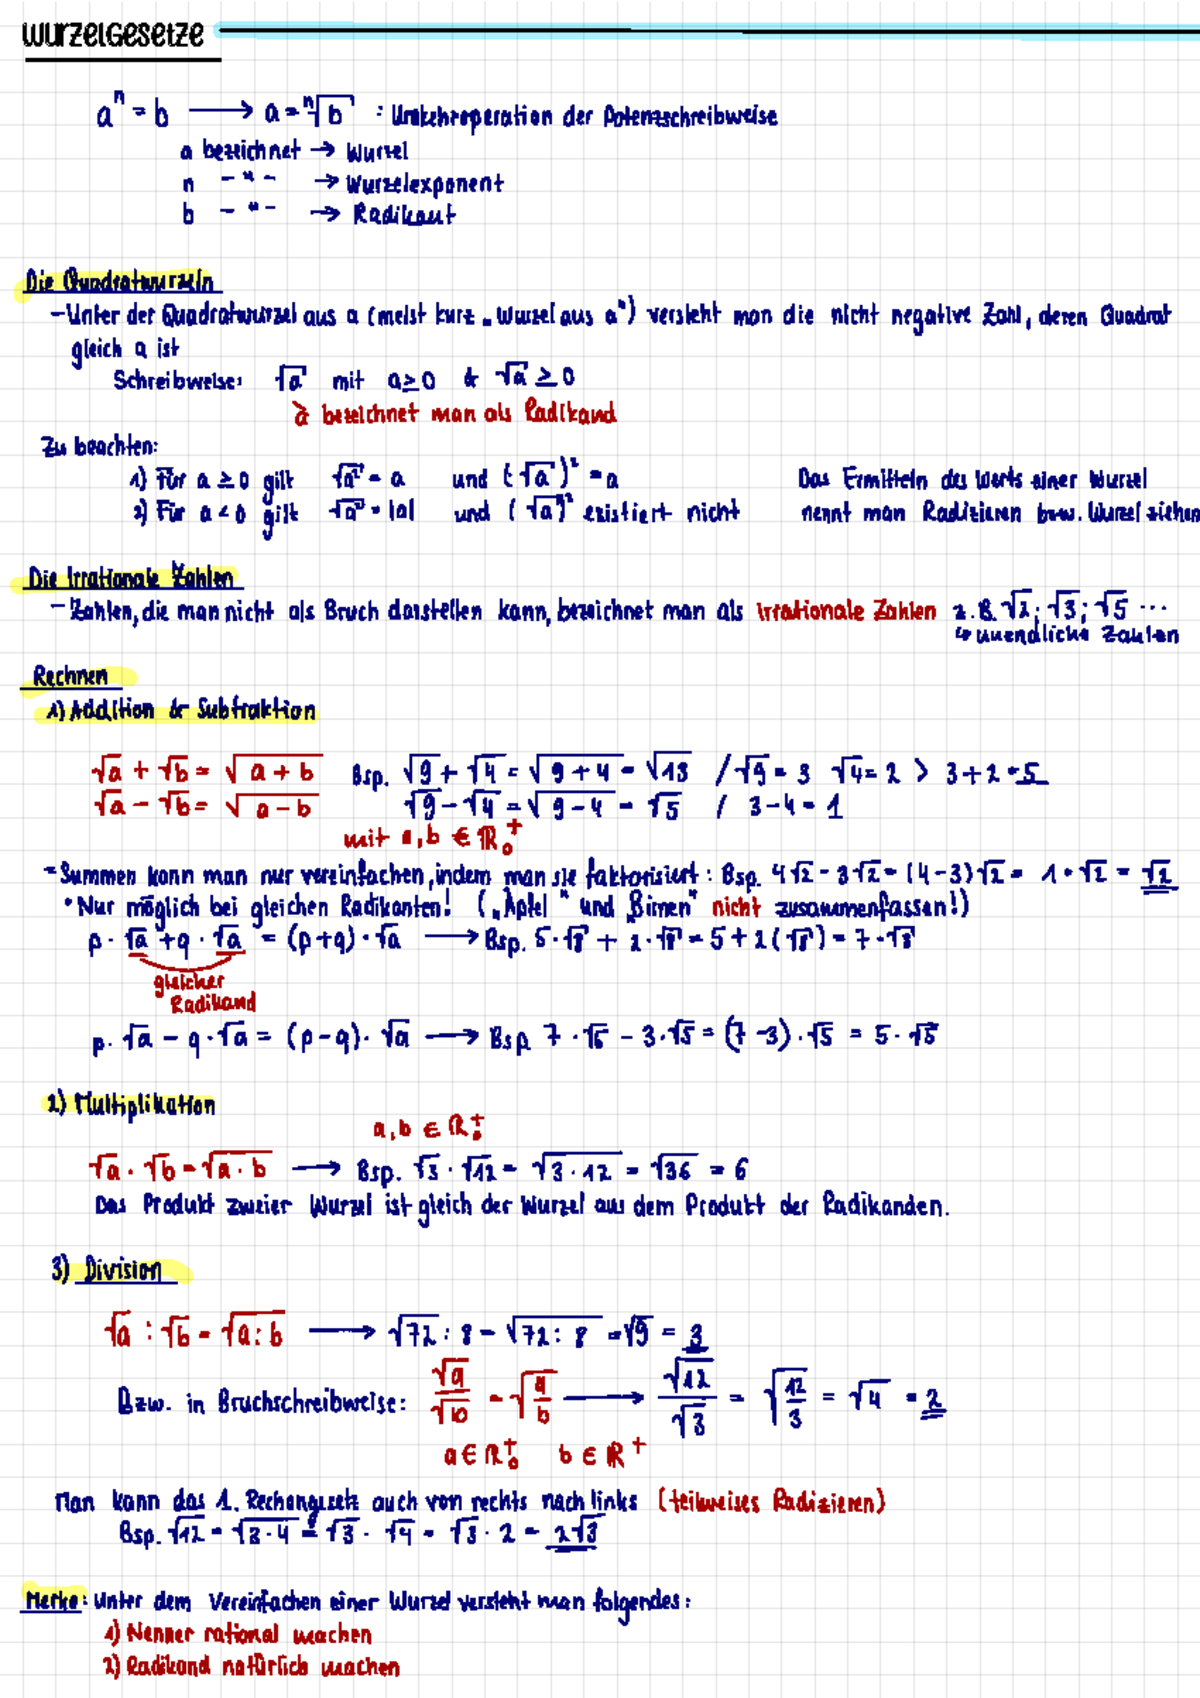 WURZELGESETZE
aⁿ = b ⟶ a = ⁿ√b : Umkehroperation der Potenzschreibweise
a bezeichnet → Wurzel
n – " – → Wurzelexponent
b – " – → Radikant
Die Quadratwurzeln
– Unter der Quadratwurzel aus a (meist kurz „Wurzel aus a") versteht man die nicht negative Zahl, deren Quadrat
gleich a ist
Schreibweise: √a mit a ≥ 0 & √a ≥ 0
a bezeichnet man als Radikand
Zu beachten:
1) Für a ≥ 0 gilt √a² = a und (√a)² = a Das Ermitteln des Werts einer Wurzel
2) Für a < 0 gilt √a² = |a| und (√a)² existiert nicht nennt man Radizieren bzw. Wurzel ziehen
Die Irrationale Zahlen
– Zahlen, die man nicht als Bruch darstellen kann, bezeichnet man als irrationale Zahlen z.B. √2; √3; √5 ...
↳ unendliche Zahlen
Rechnen
1) Addition & Subtraktion
√a + √b = √a + b Bsp. √9 + √4 = √9 + 4 = √13 / √9 = 3 √4 = 2 > 3 + 2 = 5
√a – √b = √a – b √9 – √4 = √9 – 4 = √5 / 3 – 4 = 1
mit a, b ∈ ℝ₀⁺
– Summen kann man nur vereinfachen, indem man sie faktorisiert: Bsp. 4√2 – 3√2 = (4 – 3)√2 = 1 · √2 = √2
• Nur möglich bei gleichen Radikanten! („Äpfel" und „Birnen" nicht zusammenfassen!)
p · √a + q · √a = (p + q) · √a ⟶ Bsp. 5 · √8 + 2 · √8 = 5 + 2 (√8) = 7 · √8
gleicher
Radikand
p · √a – q · √a = (p – q) · √a ⟶ Bsp 7 · √5 – 3 · √5 = (7 – 3) · √5 = 5 · √5
2) Multiplikation
a, b ∈ ℝ₀⁺
√a · √b = √a · b ⟶ Bsp. √3 · √12 = √3 · 12 = √36 = 6
Das Produkt zweier Wurzel ist gleich der Wurzel aus dem Produkt der Radikanden.
3) Division
√a : √b = √a : b ⟶ √72 : 8 = √72 : 8 = √9 = 3
Bzw. in Bruchschreibweise: √a/√b = √(a/b) ⟶ √12/√3 = √(12/3) = √4 = 2
a ∈ ℝ₀⁺ b ∈ ℝ⁺
Man kann das 1. Rechengesetz auch von rechts nach links (teilweises Radizieren)
Bsp. √12 = √3 · 4 = √3 · √4 = √3 · 2 = 2√3
Merke: Unter dem Vereinfachen einer Wurzel versteht man folgendes:
1) Nenner rational machen
2) Radikand natürlich machen